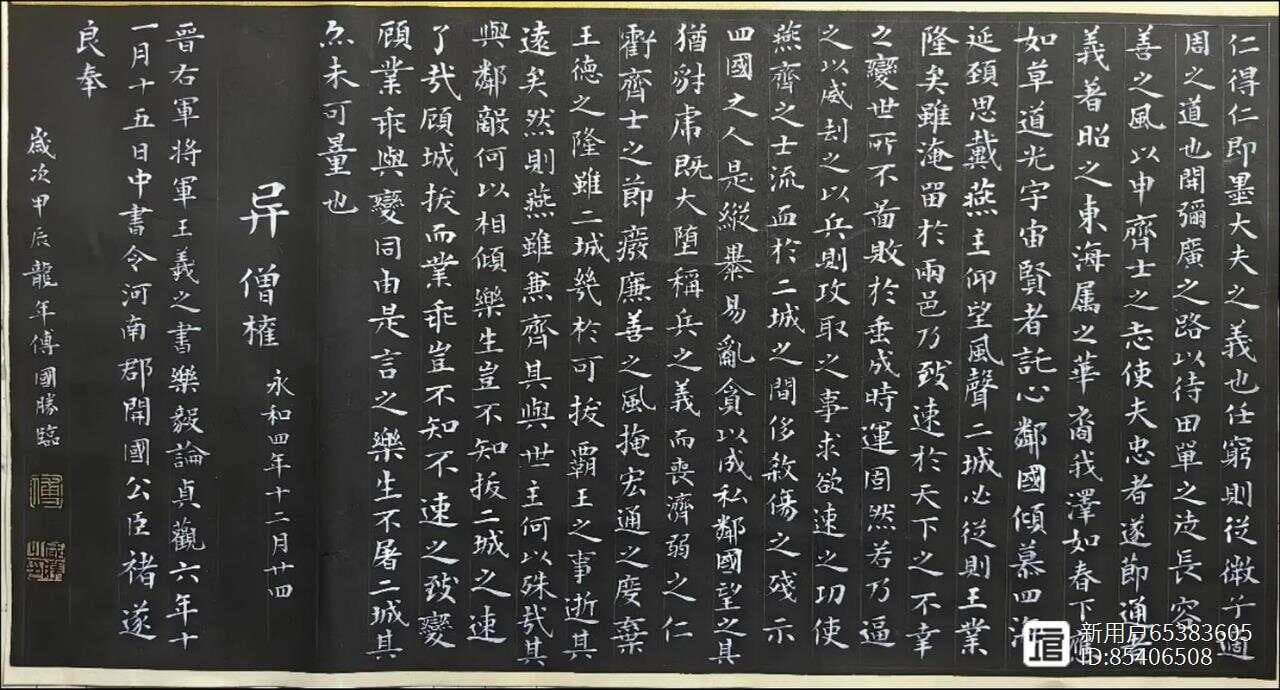 仁得仁即墨大夫之義也任窮則從微子適
周之道也開彌廣之路以待田單之徒長容
善之風以申齊士之志使夫忠者遂節通者
義著昭之東海属之華裔我澤如春下應
如草道光宇宙賢者託心鄰國傾慕四海
延頸思戴燕主仰望風聲二城必從則王業
隆矣雖淹留於兩邑乃致速於天下之不幸
之變世所不啚敗於垂成時運固然若乃逼
之以威劫之以兵則攻取之事求欲速之功使
燕齊之士流血於二城之間侈煞傷之殘示
四國之人是縱暴易亂貪以成私鄰國望之其
猶豺虎既大堕稱兵之義而喪濟弱之仁
虧齊士之節廢廉善之風掩宏通之度棄
王德之隆雖二城幾於可拔霸王之事逝其
遠矣然則燕雖兼齊其與世主何以殊哉其
與鄰敵何以相傾樂生豈不知拔二城之速
了哉顧城拔而業乖豈不知不速之致變
顧業乖與變同由是言之樂生不屠二城其
亦未可量也
异僧權
永和四年十二月廿四
晋右軍將軍王羲之書樂毅論貞觀六年十
一月十五日中書令河南郡開國公臣褚遂
良奉
歲次甲辰龍年傅國勝臨
新用户65383605
ID:85406508